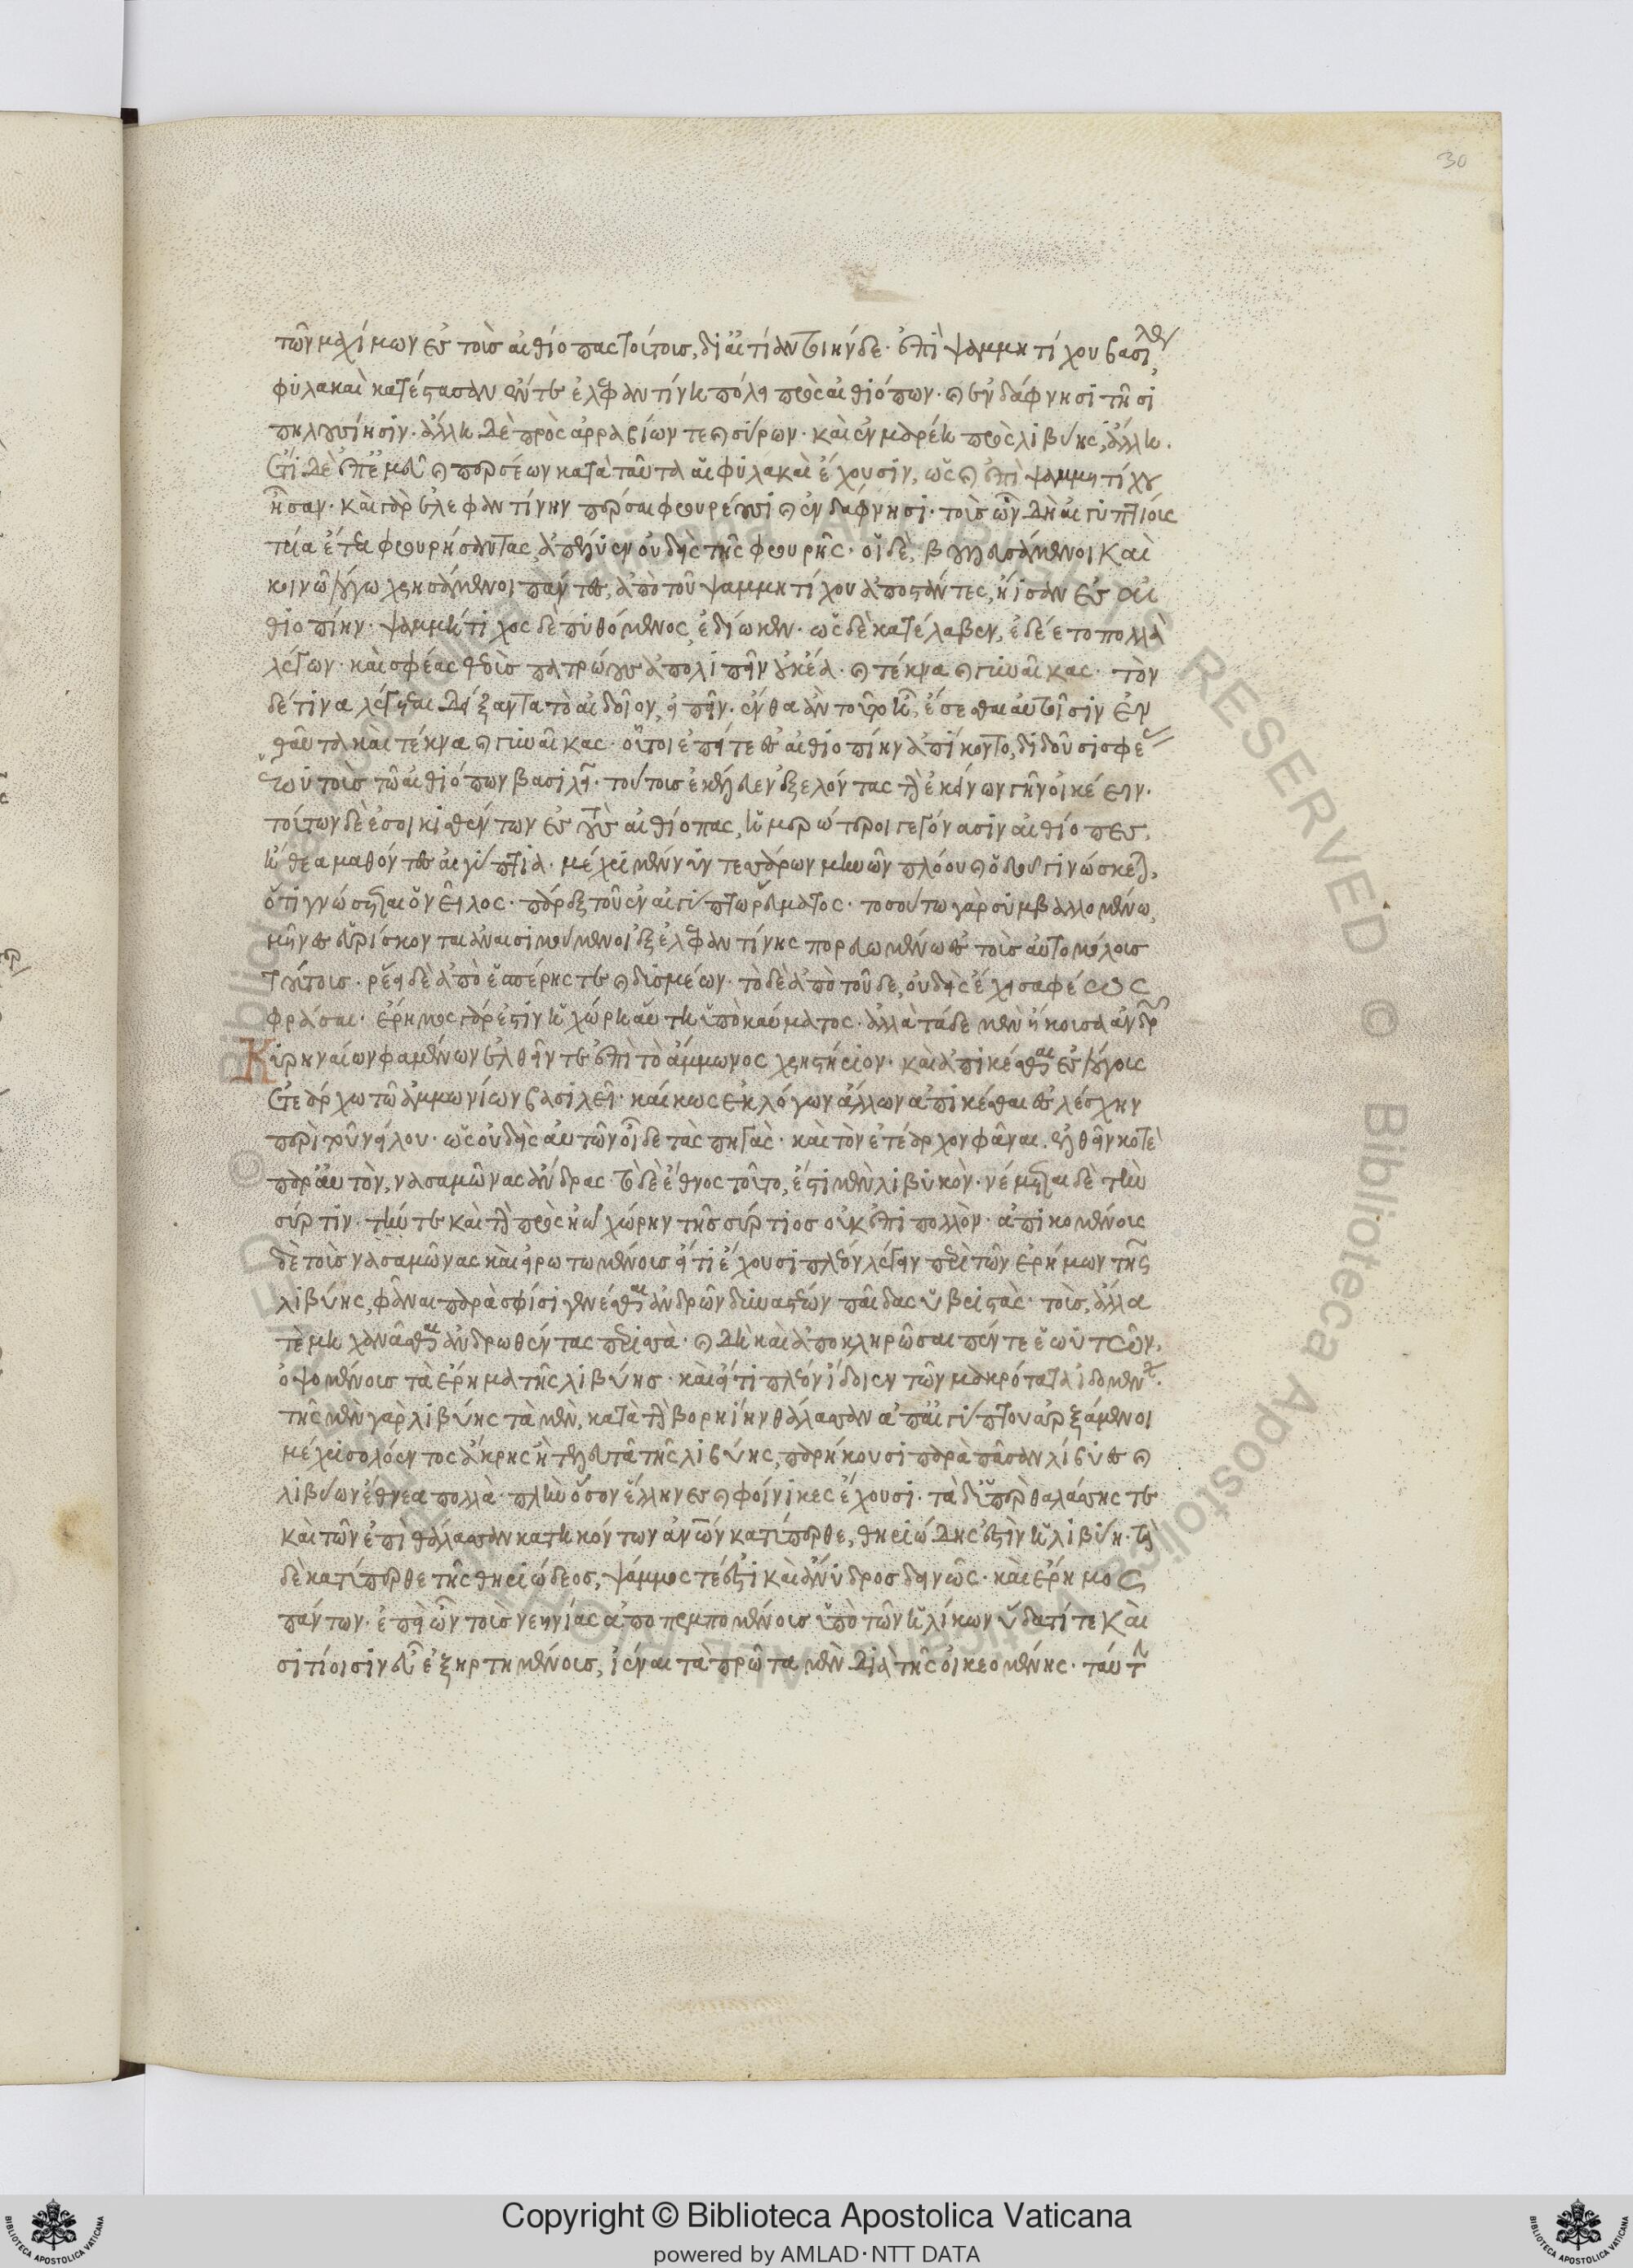 30
τῶν μαχίμων ἐς τοὺς αἰθίοπας τούτους, δι' αἰτίαν τοιήνδε· ἐπὶ ψαμμητίχου βασιλέος
φυλακαὶ κατέστασαν ἔν τε ἐλεφαντίνῃ πόλει πρὸς αἰθιόπων· καὶ ἐν δάφνῃσι τῇσι
πηλουσίῃσιν· ἄλλη δὲ πρὸς ἀρραβίων τε καὶ σύρων· καὶ ἐν μαρέῃ πρὸς λιβύης, ἄλλη.
ἔτι δὲ ἐπ' ἐμεῦ καὶ περσέων κατὰ ταὐτὰ αἱ φυλακαὶ ἔχουσιν, ὡς καὶ ἐπὶ ψαμμητίχου
ἦσαν· καὶ γὰρ ἐν ἐλεφαντίνῃ πέρσαι φρουρέουσι καὶ ἐν δάφνῃσι· τοὺς ὦν δὴ αἰγυπτίους
τρία ἔτεα φρουρήσαντας, ἀπέλυεν οὐδεὶς τῆς φρουρῆς· οἱ δὲ, βουλευσάμενοι καὶ
κοινῷ λόγῳ χρησάμενοι πάντες, ἀπὸ τοῦ ψαμμητίχου ἀποστάντες, ἤισαν ἐς αἰ
θιοπίην· ψαμμήτιχος δὲ πυθόμενος, ἐδίωκεν· ὡς δὲ κατέλαβεν, ἐδέετο πολλὰ
λέγων· καὶ σφέας θεοὺς πατρώους ἀπολιπεῖν οὐκ ἔα· καὶ τέκνα καὶ γυναῖκας· τὸν
δέ τινα λέγεται δείξαντα τὸ αἰδοῖον, εἰπεῖν· ἔνθα ἂν τοῦτο ᾖ, ἔσεσθαι αὐτοῖσιν ἐν
θαῦτα καὶ τέκνα καὶ γυναῖκας· οὗτοι ἐπείτε ἐς αἰθιοπίην ἀπίκοντο, διδοῦσι σφέ
ας αὐτοὺς τῷ αἰθιόπων βασιλέι· τούτους ἐκέλευε ἐξελόντας τὴν ἐκείνων γῆν οἰκέειν·
τούτων δὲ ἐσοικισθέντων ἐς τοὺς αἰθίοπας, ἡμερώτεροι γεγόνασιν αἰθίοπες,
ἤθεα μαθόντες αἰγύπτια· μέχρι μέν νυν τεσσέρων μηνῶν πλόου καὶ ὁδοῦ γινώσκεται,
ὅτι γνώσεται ὁ νεῖλος· πάρεξ τοῦ ἐν αἰγύπτῳ ῥεύματος· τοσούτω γὰρ συμβαλλομένῳ,
μῆνες εὑρίσκονται ἀναισιμούμενοι ἐξ ἐλεφαντίνης πορευομένῳ ἐς τοὺς αὐτομόλους
τούτους· ῥέει δὲ ἀπὸ ἑσπέρης τε καὶ δυσμέων· τὸ δὲ ἀπὸ τοῦδε, οὐδεὶς ἔχει σαφέως
φράσαι· ἔρημος γάρ ἐστιν ἡ χώρη αὕτη ὑπὸ καύματος· ἀλλὰ τάδε μὲν ἤκουσα ἀνδρῶν
Κυρηναίων φαμένων ἐλθεῖν τε ἐπὶ τὸ ἄμμωνος χρηστήριον· καὶ ἀπικέσθαι ἐς λόγους
ἐτεάρχῳ τῷ ἀμμωνίων βασιλέι· καί κως ἐκ λόγων ἄλλων ἀπικέσθαι ἐς λέσχην
περὶ τοῦ νείλου· ὡς οὐδεὶς αὐτῶν οἶδε τὰς πηγάς· καὶ τὸν ἐτέαρχον φάναι. ἐλθεῖν κοτὲ
παρ' αὐτὸν, νασαμῶνας ἄνδρας· τὸ δὲ ἔθνος τοῦτο, ἔστι μὲν λιβυκόν· νέμεται δὲ τὴν
σύρτιν· τήν τε καὶ τὴν πρὸς ἠῶ χώρην τῆς σύρτιος οὐκ ἐπὶ πολλόν· ἀπικομένους
δὲ τοὺς νασαμῶνας καὶ εἰρωτωμένους εἴ τι ἔχουσι πλέον λέγειν περὶ τῶν ἐρήμων τῆς
λιβύης, φάναι παρὰ σφίσι γενέσθαι ἀνδρῶν δυναστέων παῖδας ὑβριστάς· τοὺς, ἄλλα
τε μηχανᾶσθαι ἀνδρωθέντας περισσά· καὶ δὴ καὶ ἀποκληρῶσαι πέντε ἑωυτῶν,
ὀψομένους τὰ ἔρημα τῆς λιβύης· καὶ εἴ τι πλέον ἴδοιεν τῶν μακρότατα ἰδομένων.
τῆς μὲν γὰρ λιβύης τὰ μὲν, κατὰ τὴν βορηίην θάλασσαν ἀπ' αἰγύπτου ἀρξάμενοι
μέχρι σολόεντος ἄκρης ἣ τελευτᾷ τῆς λιβύης, παρήκουσι παρὰ πᾶσαν λίβυες καὶ
λιβύων ἔθνεα πολλά· πλὴν ὅσον ἕλληνες καὶ φοίνικες ἔχουσι· τὰ δ' ὑπὲρ θαλάσσης τε
καὶ τῶν ἐπὶ θάλασσαν κατηκόντων ἀνθρώπων κατύπερθε, θηριώδης ἐστὶν ἡ λιβύη· τὰ
δὲ κατύπερθε τῆς θηριώδεος, ψάμμος τέ ἐστι καὶ ἄνυδρος δεινῶς· καὶ ἔρημος
πάντων· ἐπεὶ ὦν τοὺς νεηνίας ἀποπεμπομένους ὑπὸ τῶν ἡλίκων ὕδασί τε καὶ
σιτίοισιν εὖ ἐξηρτημένους, ἰέναι τὰ πρῶτα μὲν διὰ τῆς οἰκεομένης· ταύτην
Copyright © Biblioteca Apostolica Vaticana
powered by AMLAD·NTT DATA